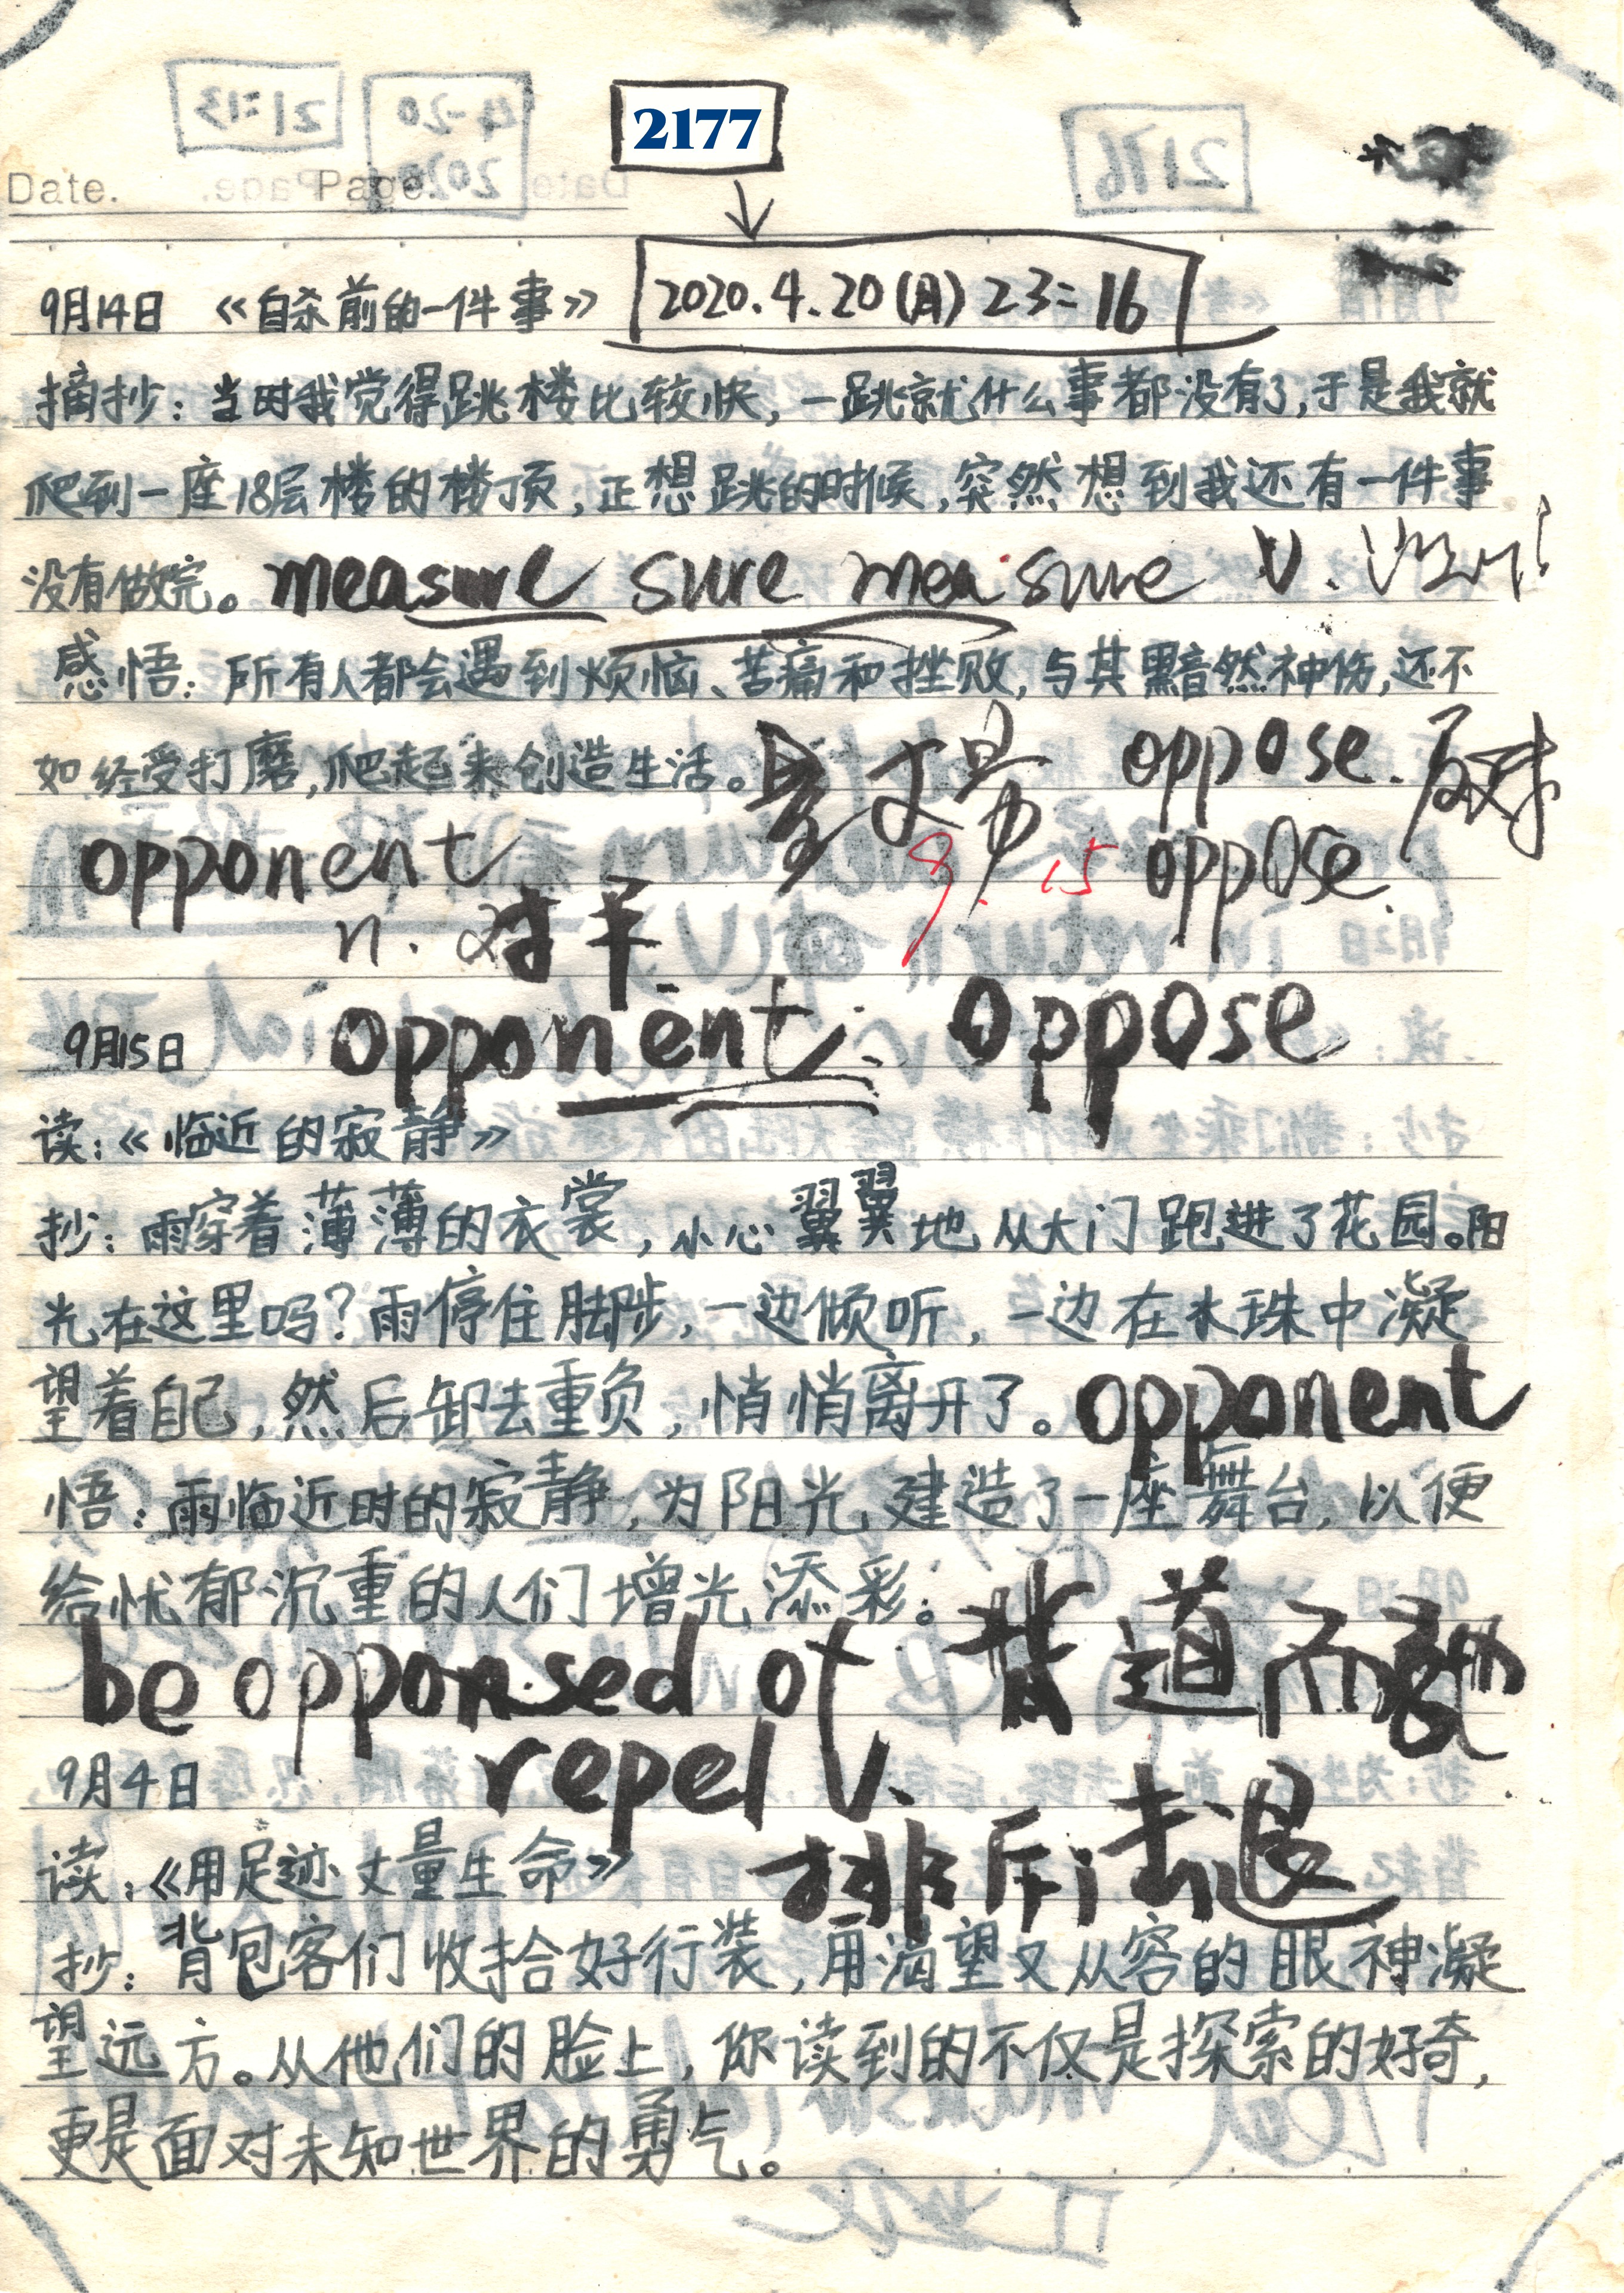 2177
Date. Page.
9月14日 《自杀前的一件事》 2020.4.20(月) 23:16
摘抄：当时我觉得跳楼比较快，一跳就什么事都没有了，于是我就
爬到一座18层楼的楼顶，正想跳的时候，突然想到我还有一件事
没有做完。 measure sure mea sure v.
感悟：所有人都会遇到烦恼、苦痛和挫败，与其黯然神伤，还不
如经受打磨，爬起来创造生活。 oppose. 反对
opponent 9.15 oppose.
n. 对手
9月15日 opponent. oppose
读：《临近的寂静》
抄：雨穿着薄薄的衣裳，小心翼翼地从大门跑进了花园。阳
光在这里吗？雨停住脚步，一边倾听，一边在水珠中凝
望着自己，然后卸去重负，悄悄离开了。 opponent
悟：雨临近时的寂静，为阳光建造了一座舞台，以便
给忧郁沉重的人们增光添彩。
be opponsed of 背道而驰
9月4日 repel v.
读：《用足迹丈量生命》 排斥；击退
抄：背包客们收拾好行装，用渴望又从容的眼神凝
望远方。从他们的脸上，你读到的不仅是探索的好奇，
更是面对未知世界的勇气。